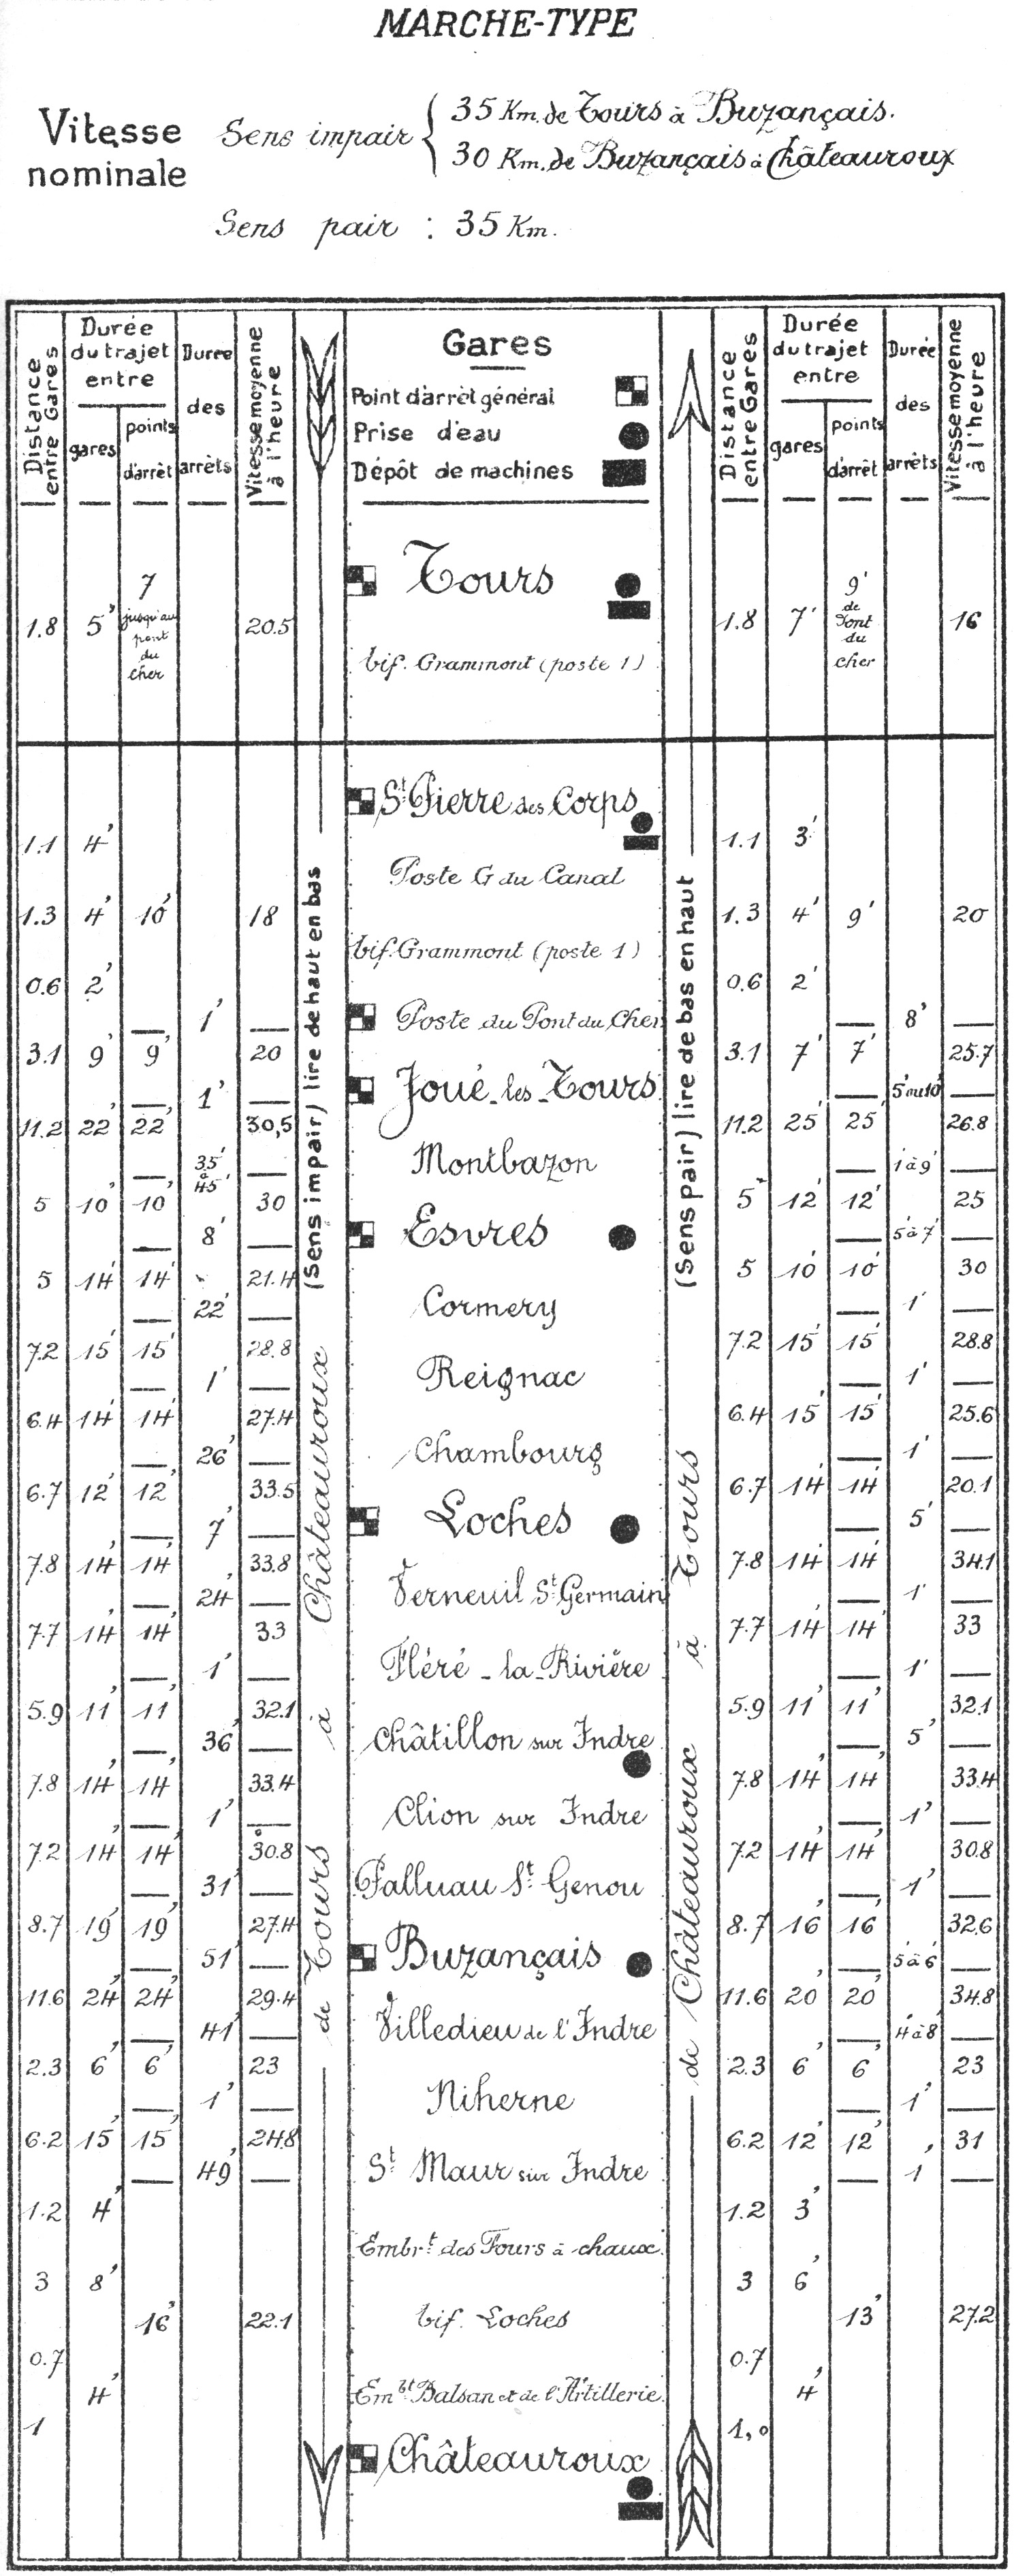 MARCHE-TYPE
Vitesse nominale
Sens impair { 35 Km. de Tours à Buzançais.
30 Km. de Buzançais à Châteauroux
Sens pair : 35 Km.
Distance entre Gares
Durée du trajet entre
gares
points d'arrêt
Durée des arrêts
Vitesse moyenne à l'heure
Gares
Point d'arrêt général
Prise d'eau
Dépôt de machines
Distance entre Gares
Durée du trajet entre
gares
points d'arrêt
Durée des arrêts
Vitesse moyenne à l'heure
(Sens impair) lire de haut en bas
de Tours à Châteauroux
(Sens pair) lire de bas en haut
de Châteauroux à Tours
Tours
1.8 5' 7 jusqu'au pont du Cher 20.5 1.8 7' 9' de Pont du Cher 16
bif. Grammont (poste 1)
St Pierre des Corps
1.1 4' 1.1 3'
Poste G du Canal
1.3 4' 10' 18 1.3 4' 9' 20
bif. Grammont (poste 1)
0.6 2' 0.6 2'
1' Poste du Pont du Cher 8'
3.1 9' 9' 20 3.1 7' 7' 25.7
1' Joué-les-Tours 5' ou 10'
11.2 22' 22' 30,5 11.2 25' 25' 26.8
35' à 45' Montbazon 1 à 9'
5 10' 10' 30 5 12' 12' 25
8' Esvres 5 à 7'
5 14' 14' 21.4 5 10' 10' 30
22' Cormery 1'
7.2 15' 15' 28.8 7.2 15' 15' 28.8
1' Reignac 1'
6.4 14' 14' 27.4 6.4 15' 15' 25.6
26' Chambourg 1'
6.7 12' 12' 33.5 6.7 14' 14' 20.1
7' Loches 5'
7.8 14' 14' 33.8 7.8 14' 14' 34.1
24' Verneuil St Germain 1'
7.7 14' 14' 33 7.7 14' 14' 33
1' Fléré-la-Rivière 1'
5.9 11' 11' 32.1 5.9 11' 11' 32.1
36' Châtillon sur Indre 5'
7.8 14' 14' 33.4 7.8 14' 14' 33.4
1' Clion sur Indre 1'
7.2 14' 14' 30.8 7.2 14' 14' 30.8
31' Palluau St Genou 1'
8.7 19' 19' 27.4 8.7 16' 16' 32.6
51' Buzançais 5 à 6'
11.6 24' 24' 29.4 11.6 20' 20' 34.8
41' Villedieu de l'Indre 4 à 8'
2.3 6' 6' 23 2.3 6' 6' 23
1' Niherne 1'
6.2 15' 15' 24.8 6.2 12' 12' 31
49' St Maur sur Indre 1'
1.2 4' 1.2 3'
Embrt des Fours à chaux
3 8' 3 6'
16' 22.1 bif. Loches 13' 27.2
0.7 0.7
4' Embt Balsan et de l'Artillerie 4'
1 1,0
Châteauroux